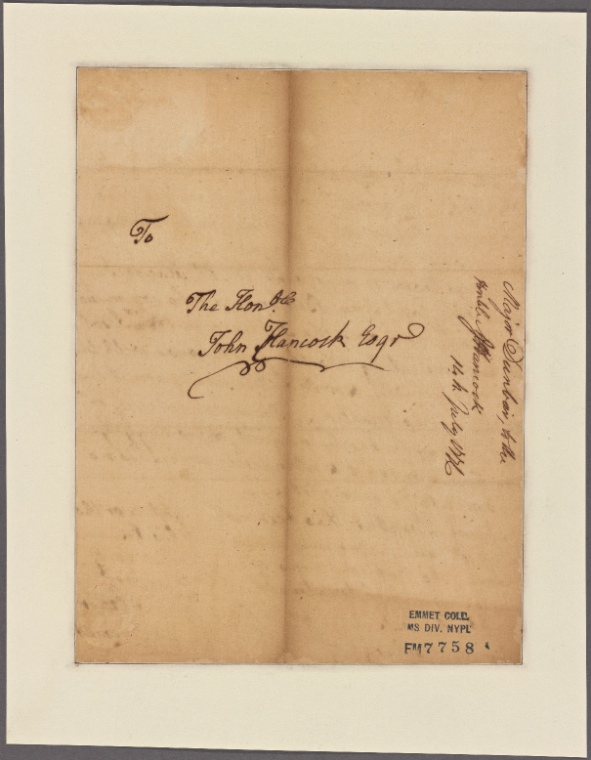 To
The Honble
John Hancock Esqr
Major Dunbar, to the
Honbl. J Hancock
14th July 1776
EMMET COLL.
MS DIV. NYPL
EM7758